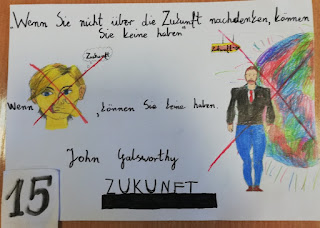 „Wenn Sie nicht über die Zukunft nachdenken, können
Sie keine haben"
Zukunft
Zukunft
Wenn
, können Sie keine haben.
John Galsworthy
ZUKUNFT
15